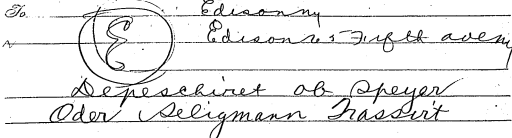 To.
Edison ny
E
Edison 65 Fifth aveny
Depeschiret ob Speyer
Oder Seligmann Trassirt